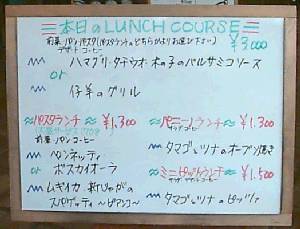 本日のLUNCH COURSE
前菜 パン パスタ(パスタランチのどちらかよりお選び下さい)
デザート コーヒー
¥3,000
ハマグリ・タチウオ・木の子のバルサミコソース
or
仔羊のグリル
パスタランチ ¥1,300
前菜 パン コーヒー
ペンネッティ
ボスカイオーラ
or
ムギイカ 新じゃがの
スパゲッティ ～ビアンコ～
パニーニランチ ¥1,300
タマゴとツナのオーブン焼き
ミニピッツァランチ ¥1,500
タマゴとツナのピッツァ